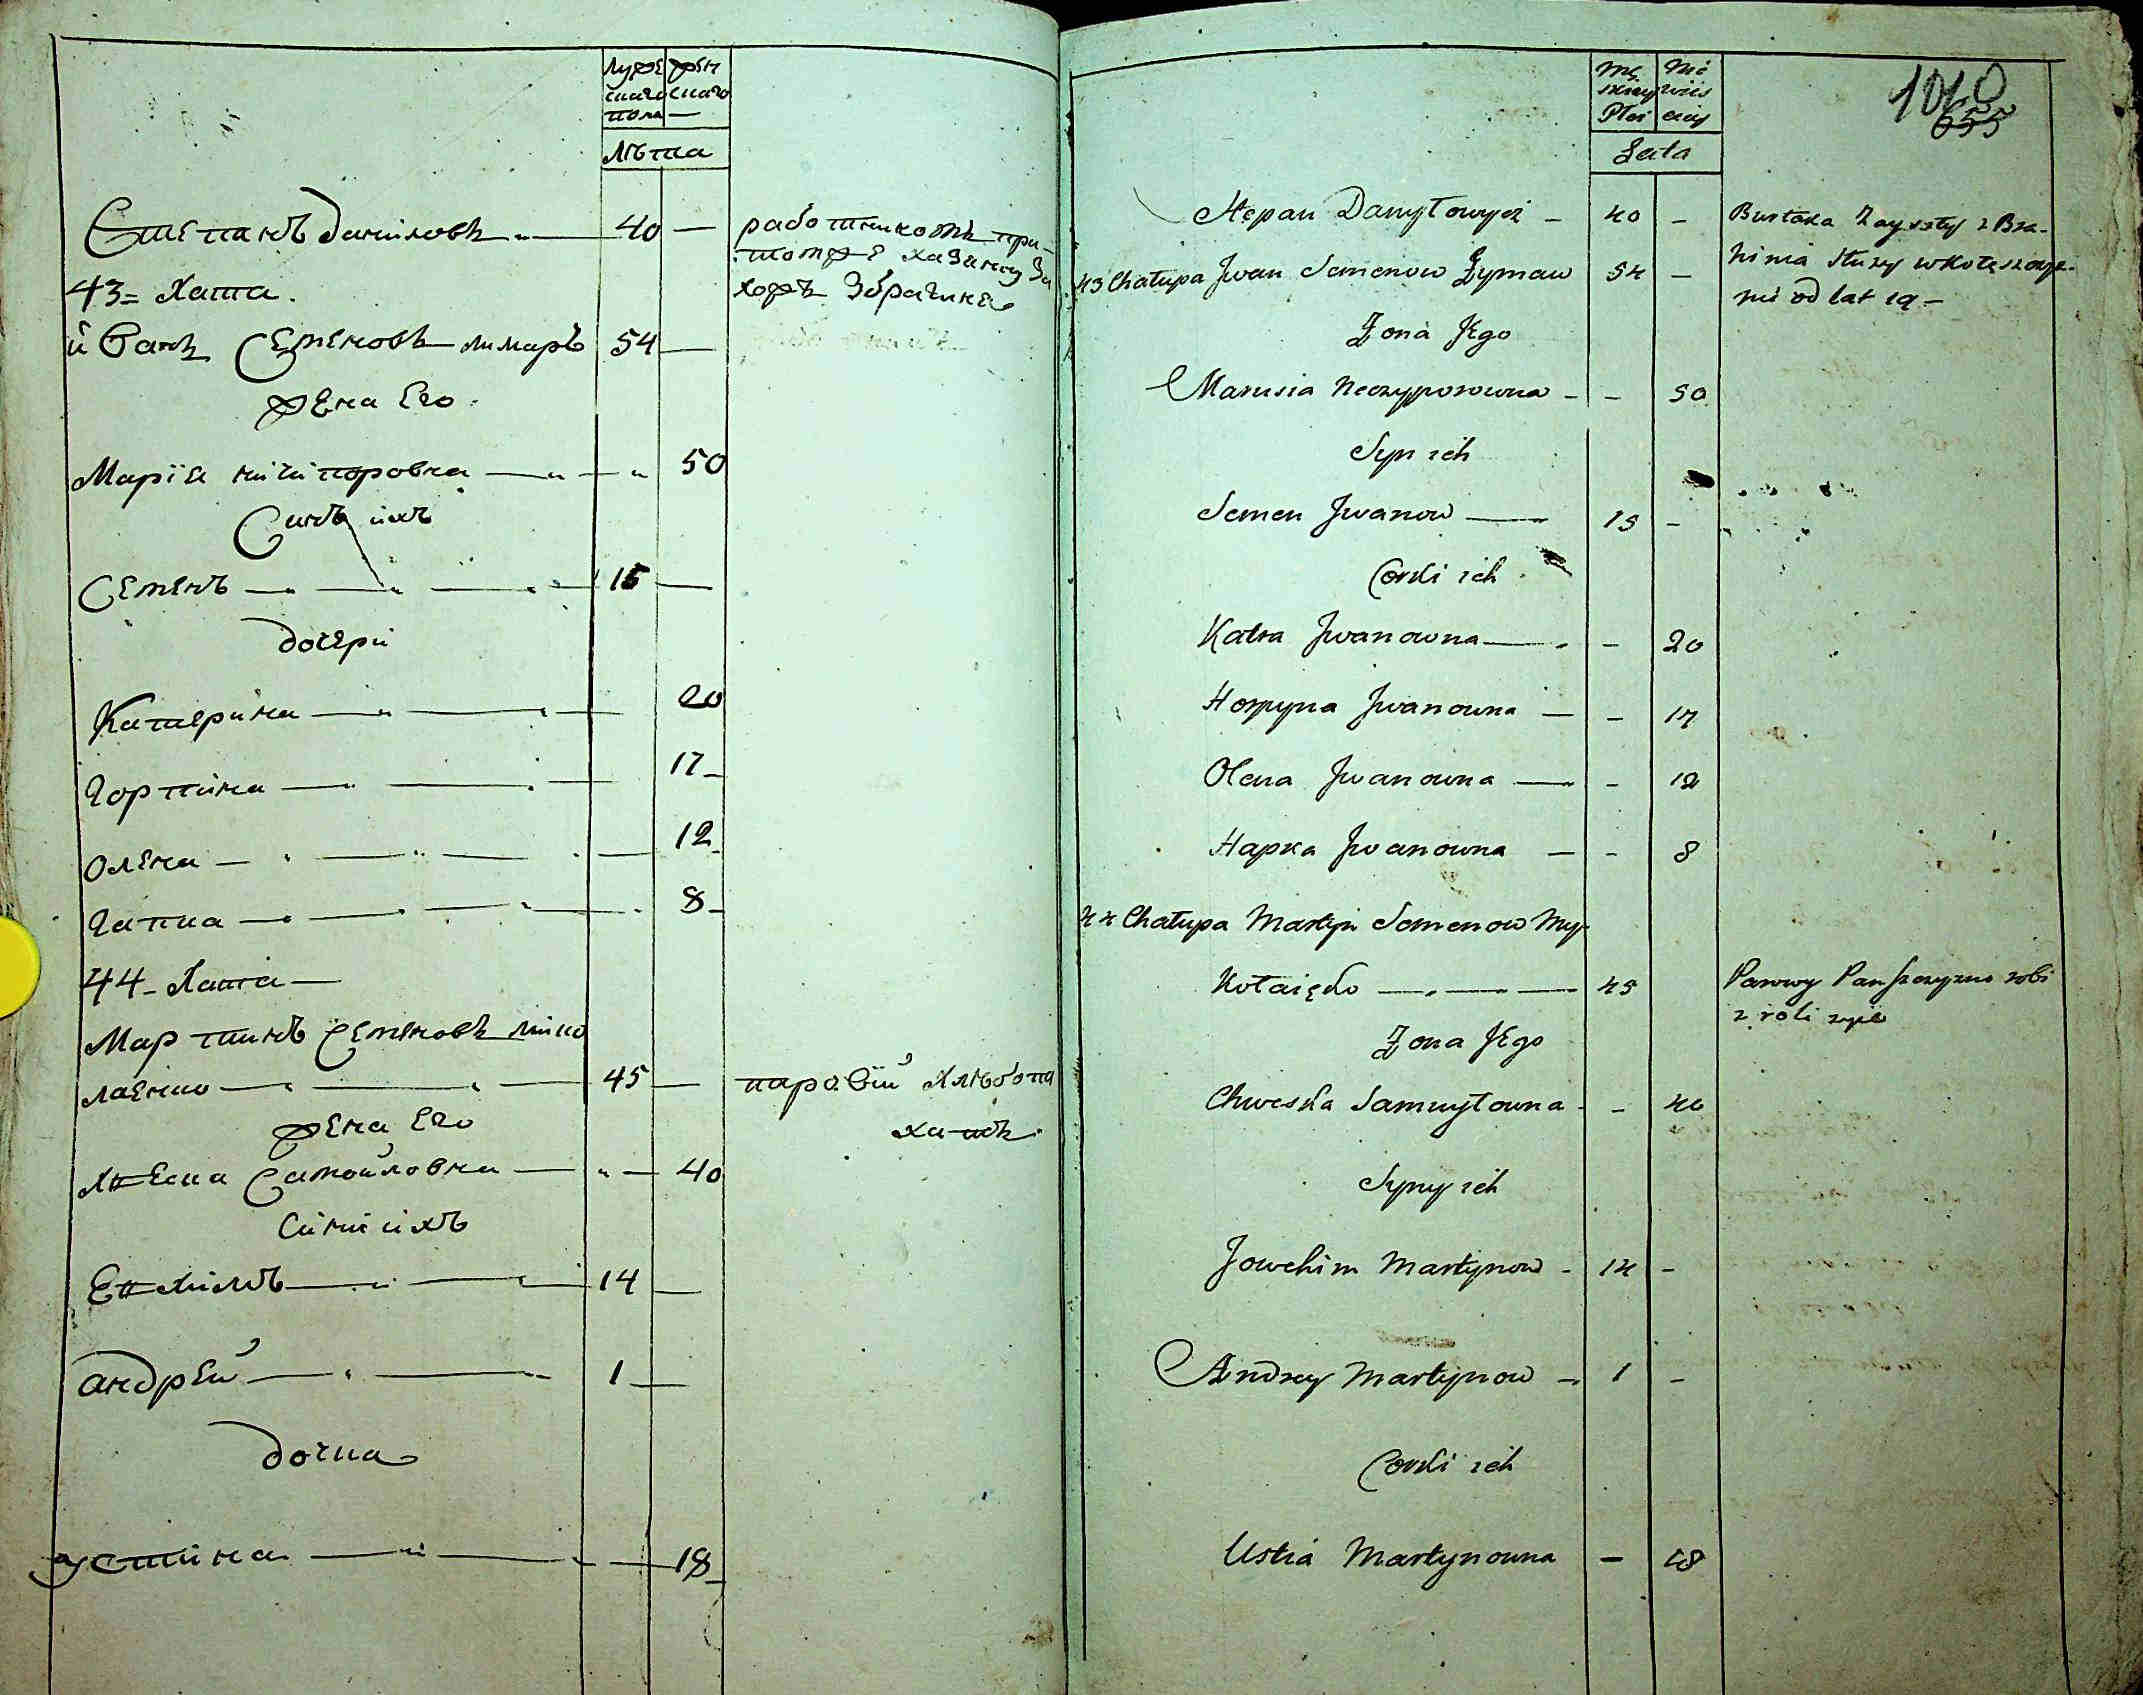 муже жен
скаго скаго
пола —
Лѣта
Степанъ Даниловъ — 40 — работникомъ при
томже хазяину За
43 = Хата.
хожъ Збрагиня
иванъ Семеновъ лимаръ 54 —
жена Его
Марїя ничипоровна — — 50
Синъ ихъ
Семенъ — 15 —
дочери
Катерина — 20
Горпина — 17
Олена — 12
Гапка — 8
44 — Хата —
Мартинъ Семеновъ мико
лаенко — 45 — паровїй хлѣбопа
жена Его
халъ
Хвеска Самойловна — — 40
Сини ихъ
Евхимъ — 14 —
андрей — 1 —
дочка
устина — — 18
Mę Nie
skiey wies
Płci ciey
Lata
1010
655
Stepan Danyłowycz — 40 — Burłaka Zayszły z Bra-
hinia służy w
nie od lat
43 Chałupa Jwan Semenow Lymaw 54 —
Żona Jego
Marusia Neczyporowna — — 50
Syn ich
Semen Jwanow — 15 —
Corki ich
Katra Jwanowna — — 20
Horpyna Jwanowna — — 17
Olena Jwanowna — — 12
Hapka Jwanowna — — 8
44 Chałupa Martyn Semenow My-
kołaięko — 45 Parowy Panszczyzne robi
z roli żyie
Żona Jego
Chweska Samuyłowna — — 40
Syny ich
Jowchim Martynow — 14 —
Andrey Martynow — 1 —
Corki ich
Ustia Martynowna — 18